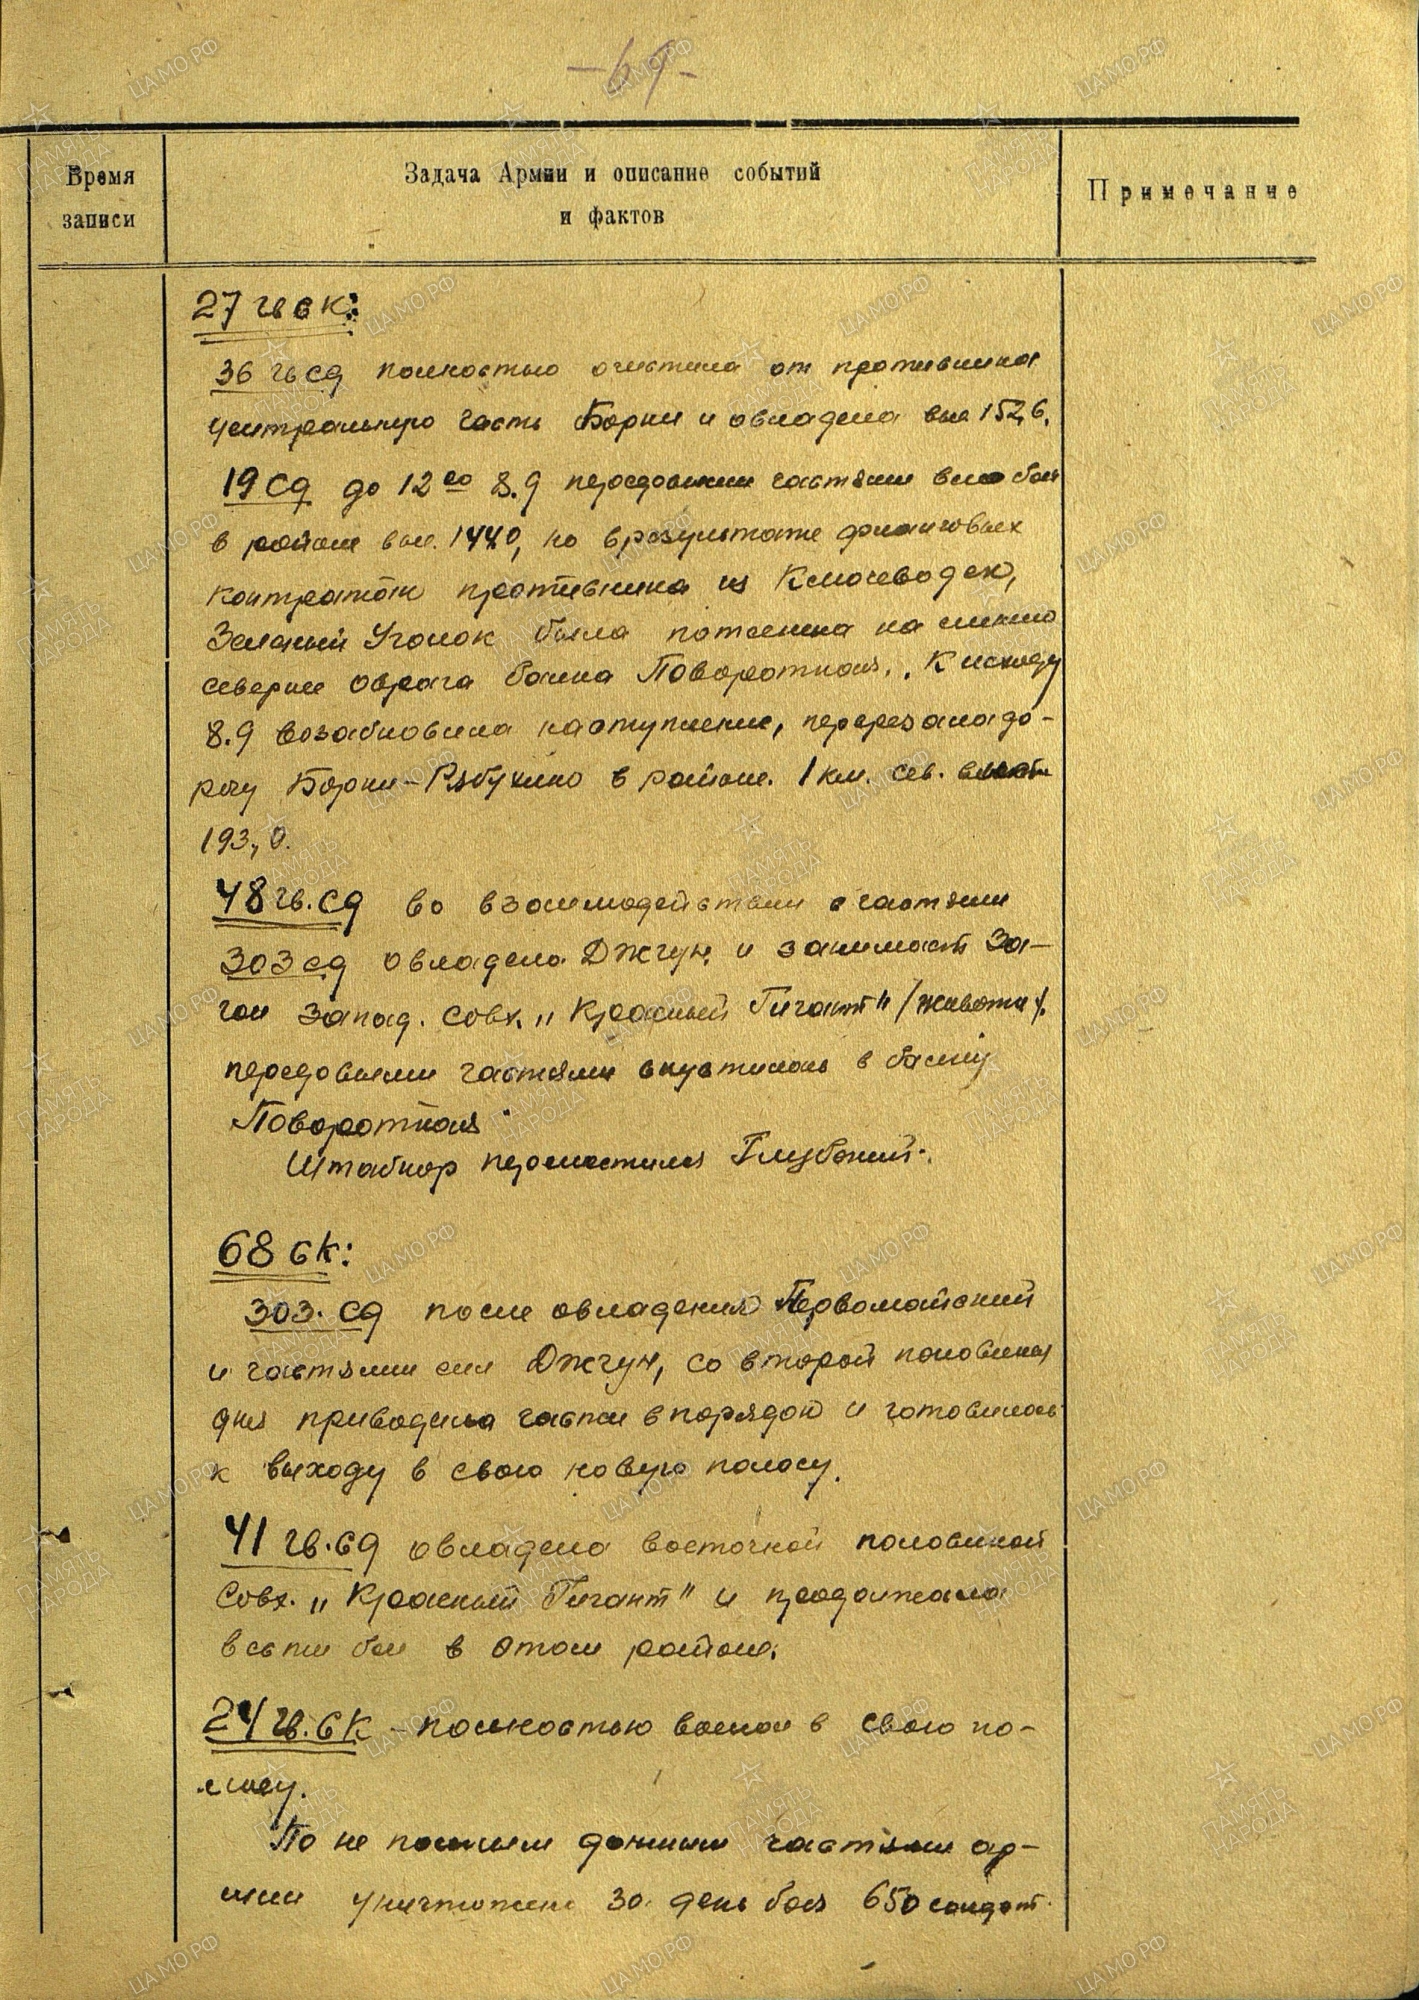 -69-
Время записи
Задача Армии и описание событий
и фактов
Примечание
27 гв ск:
36 гв сд полностью очистила от противника
центральную часть Борки и овладела выс 152,6.
19 сд до 12 00 8.9 передовыми частями вела бой
в районе выс. 144,0, но в результате фланговых
контратак противника из Ключеводск,
Зеленый Уголок была потеснена на линию
севернее оврага балка Поворотная. К исходу
8.9 возабновила наступление, перерезала до-
рогу Борки-Рябухино в районе. 1 км. сев. высоты
193,0.
48 гв. сд во взаимодействии с частями
303 сд овладела Джгун и занимает За-
гон Запад. совх. „Красный Гигант" /животн/.
передовыми частями спустилась в балку
Поворотная.
Штабкор переместился Глубокий.
68 ск:
303. сд после овладения Первомайский
и частями сил Джгун, со второй половины
дня приводила части в порядок и готовилась
к выходу в свою новую полосу.
41 гв. сд овладела восточной половиной
Совх. „Красный Гигант" и продолжала
вести бои в этом районе.
24 гв. ск - полностью вошел в свою по-
лосу.
По не полным данным частями ар-
мии уничтожено за день боя 650 солдат